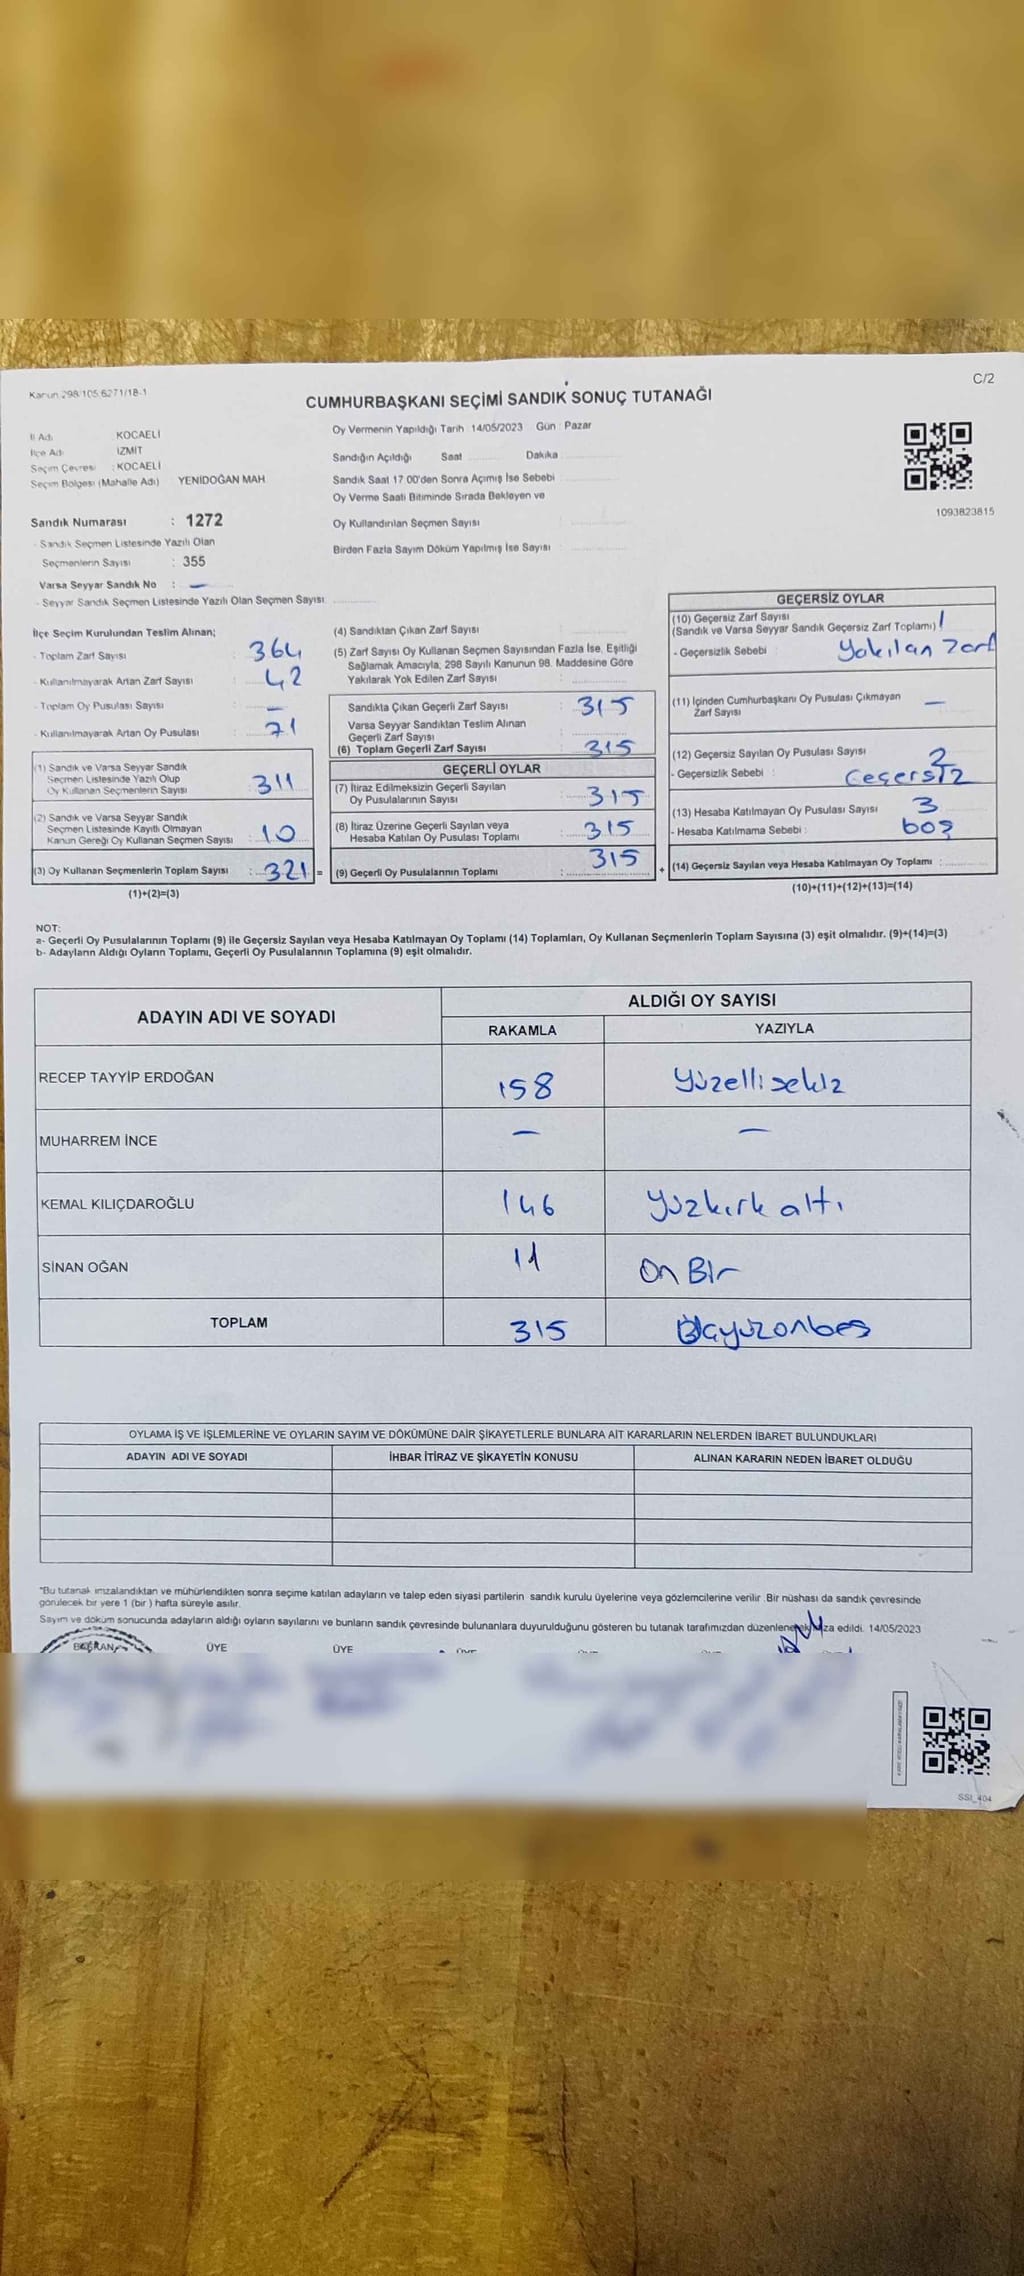 Kanun 298/105 6271/18-1
C/2
CUMHURBAŞKANI SEÇİMİ SANDIK SONUÇ TUTANAĞI
İl Adı : KOCAELİ
İlçe Adı : İZMİT
Seçim Çevresi : KOCAELİ
Seçim Bölgesi (Mahalle Adı) YENİDOĞAN MAH
Sandık Numarası : 1272
- Sandık Seçmen Listesinde Yazılı Olan
Seçmenlerin Sayısı : 355
Varsa Seyyar Sandık No : –
- Seyyar Sandık Seçmen Listesinde Yazılı Olan Seçmen Sayısı
Oy Vermenin Yapıldığı Tarih : 14/05/2023 Gün : Pazar
Sandığın Açıldığı Saat Dakika
Sandık Saat 17 00'den Sonra Açımış İse Sebebi
Oy Verme Saati Bitiminde Sırada Bekleyen ve
Oy Kullandırılan Seçmen Sayısı
Birden Fazla Sayım Döküm Yapılmış İse Sayısı
1093823815
İlçe Seçim Kurulundan Teslim Alınan;
- Toplam Zarf Sayısı : 364
- Kullanılmayarak Artan Zarf Sayısı : 42
- Toplam Oy Pusulası Sayısı : –
- Kullanılmayarak Artan Oy Pusulası : 71
(1) Sandık ve Varsa Seyyar Sandık
Seçmen Listesinde Yazılı Olup
Oy Kullanan Seçmenlerin Sayısı : 311
(2) Sandık ve Varsa Seyyar Sandık
Seçmen Listesinde Kayıtlı Olmayan
Kanun Gereği Oy Kullanan Seçmen Sayısı : 10
(3) Oy Kullanan Seçmenlerin Toplam Sayısı : 321 =
(1)+(2)=(3)
(4) Sandıktan Çıkan Zarf Sayısı
(5) Zarf Sayısı Oy Kullanan Seçmen Sayısından Fazla İse, Eşitliği
Sağlamak Amacıyla; 298 Sayılı Kanunun 98. Maddesine Göre
Yakılarak Yok Edilen Zarf Sayısı
Sandıkta Çıkan Geçerli Zarf Sayısı : 315
Varsa Seyyar Sandıktan Teslim Alınan
Geçerli Zarf Sayısı
(6) Toplam Geçerli Zarf Sayısı 315
GEÇERLİ OYLAR
(7) İtiraz Edilmeksizin Geçerli Sayılan
Oy Pusulalarının Sayısı : 315
(8) İtiraz Üzerine Geçerli Sayılan veya
Hesaba Katılan Oy Pusulası Toplamı : 315
(9) Geçerli Oy Pusulalarının Toplamı : 315 +
GEÇERSİZ OYLAR
(10) Geçersiz Zarf Sayısı
(Sandık ve Varsa Seyyar Sandık Geçersiz Zarf Toplamı) 1
- Geçersizlik Sebebi : Yakılan Zarf
(11) İçinden Cumhurbaşkanı Oy Pusulası Çıkmayan
Zarf Sayısı –
(12) Geçersiz Sayılan Oy Pusulası Sayısı 2
- Geçersizlik Sebebi : Geçersiz
(13) Hesaba Katılmayan Oy Pusulası Sayısı 3
- Hesaba Katılmama Sebebi : boş
(14) Geçersiz Sayılan veya Hesaba Katılmayan Oy Toplamı :
(10)+(11)+(12)+(13)=(14)
NOT:
a- Geçerli Oy Pusulalarının Toplamı (9) ile Geçersiz Sayılan veya Hesaba Katılmayan Oy Toplamı (14) Toplamları, Oy Kullanan Seçmenlerin Toplam Sayısına (3) eşit olmalıdır. (9)+(14)=(3)
b- Adayların Aldığı Oyların Toplamı, Geçerli Oy Pusulalarının Toplamına (9) eşit olmalıdır.
ADAYIN ADI VE SOYADI ALDIĞI OY SAYISI
RAKAMLA YAZIYLA
RECEP TAYYİP ERDOĞAN 158 Yüzellisekiz
MUHARREM İNCE – –
KEMAL KILIÇDAROĞLU 146 Yüzkırk altı
SİNAN OĞAN 11 On Bir
TOPLAM 315 Üçyüzonbeş
OYLAMA İŞ VE İŞLEMLERİNE VE OYLARIN SAYIM VE DÖKÜMÜNE DAİR ŞİKAYETLERLE BUNLARA AİT KARARLARIN NELERDEN İBARET BULUNDUKLARI
ADAYIN ADI VE SOYADI İHBAR İTİRAZ VE ŞİKAYETİN KONUSU ALINAN KARARIN NEDEN İBARET OLDUĞU
*Bu tutanak imzalandıktan ve mühürlendikten sonra seçime katılan adayların ve talep eden siyasi partilerin sandık kurulu üyelerine veya gözlemcilerine verilir. Bir nüshası da sandık çevresinde
görülecek bir yere 1 (bir ) hafta süreyle asılır.
Sayım ve döküm sonucunda adayların aldığı oyların sayılarını ve bunların sandık çevresinde bulunanlara duyurulduğunu gösteren bu tutanak tarafımızdan edildi. 14/05/2023
BAŞKAN ÜYE ÜYE
SSI_404